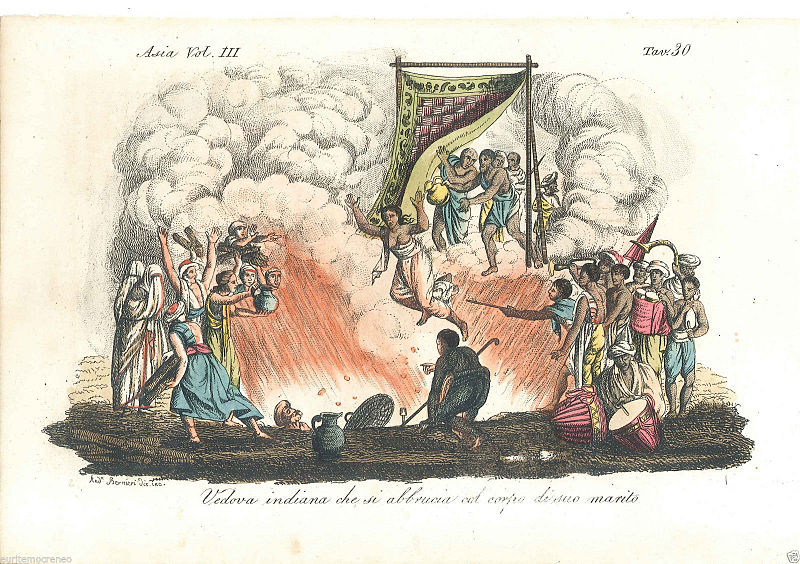 Asia Vol. III
Tav. 30
And. Bernieri dis. inc.
Vedova indiana che si abbrucia col corpo di suo marito
euritemocreneo